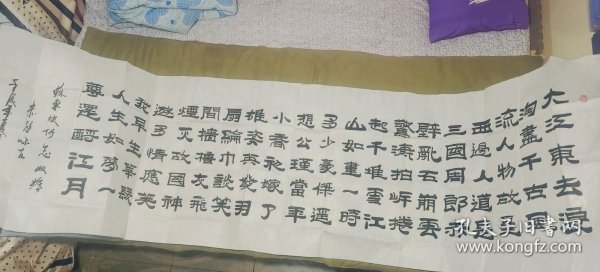 大江東去浪
淘盡千古風
流人物故壘
西邊人道是
三國周郎赤
壁亂石崩雲
驚濤拍岸捲
起千堆雪江
山如畫一時
多少豪傑遥
想公瑾當年
小喬初嫁了
雄姿英發羽
扇綸巾談笑
間檣櫓灰飛
煙灭故國神
遊多情應笑
我早生華髮
人生如夢一
尊還酹江月
蘇東坡
孔夫子旧书网
www.kongfz.com